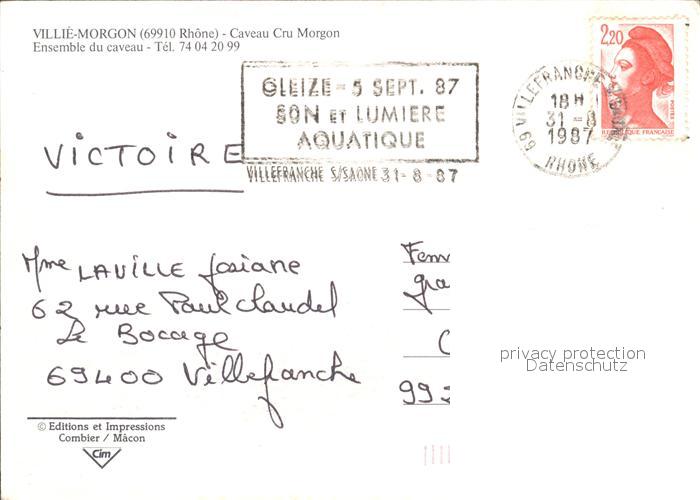 VILLIÉ-MORGON (69910 Rhône) - Caveau Cru Morgon
Ensemble du caveau - Tél. 74 04 20 99
GLEIZE - 5 SEPT. 87
SON ET LUMIERE
AQUATIQUE
VILLEFRANCHE S/SAONE 31-8-87
2,20
POSTES
REPUBLIQUE FRANÇAISE
69 VILLEFRANCHE S/SAONE
18H
31-8
1987
RHONE
VICTOIRE
Mme LAVILLE Josiane
62 rue Paul Claudel
Le Bocage
69400 Villefranche
Fem
gra
99
privacy protection
Datenschutz
© Editions et Impressions
Combier / Mâcon
Cim